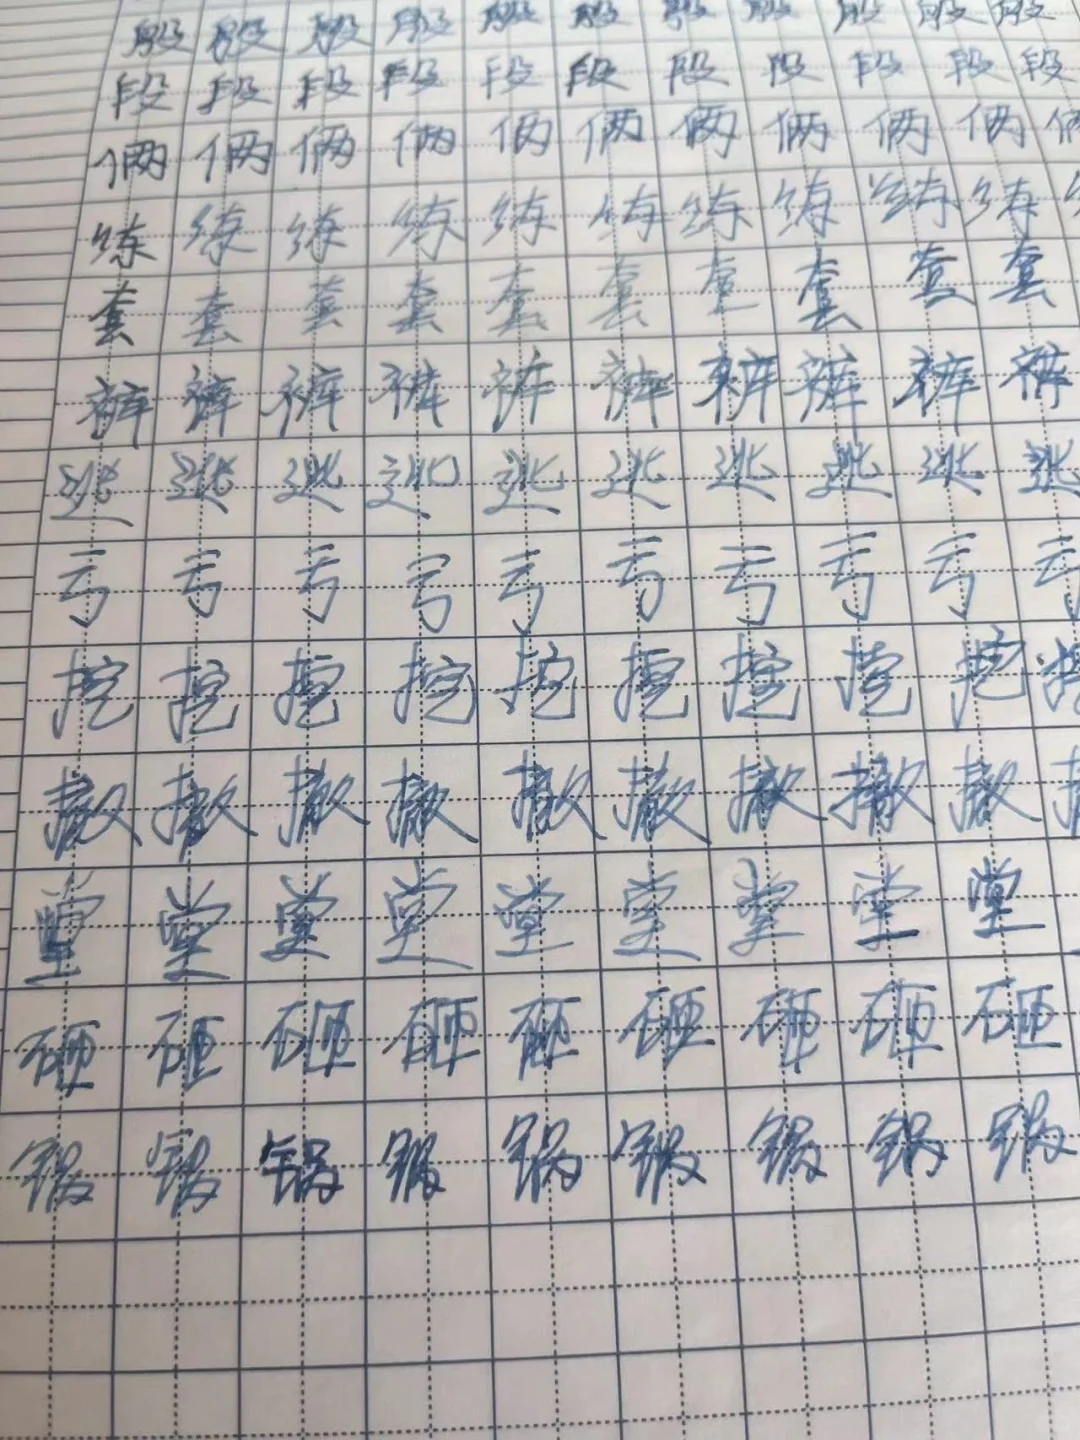 股 股 股 股 股 股 股 股 股 股 股
段 段 段 段 段 段 段 段 段 段 段
俩 俩 俩 俩 俩 俩 俩 俩 俩 俩 俩
练 练 练 练 练 练 练 练 练 练
套 套 套 套 套 套 套 套 套 套
裤 裤 裤 裤 裤 裤 裤 裤 裤 裤
逃 逃 逃 逃 逃 逃 逃 逃 逃 逃
亏 亏 亏 亏 亏 亏 亏 亏 亏 亏
挖 挖 挖 挖 挖 挖 挖 挖 挖
撤 撤 撤 撤 撤 撤 撤 撤 撤
堂 堂 堂 堂 堂 堂 堂 堂 堂
砸 砸 砸 砸 砸 砸 砸 砸 砸
锅 锅 锅 锅 锅 锅 锅 锅 锅